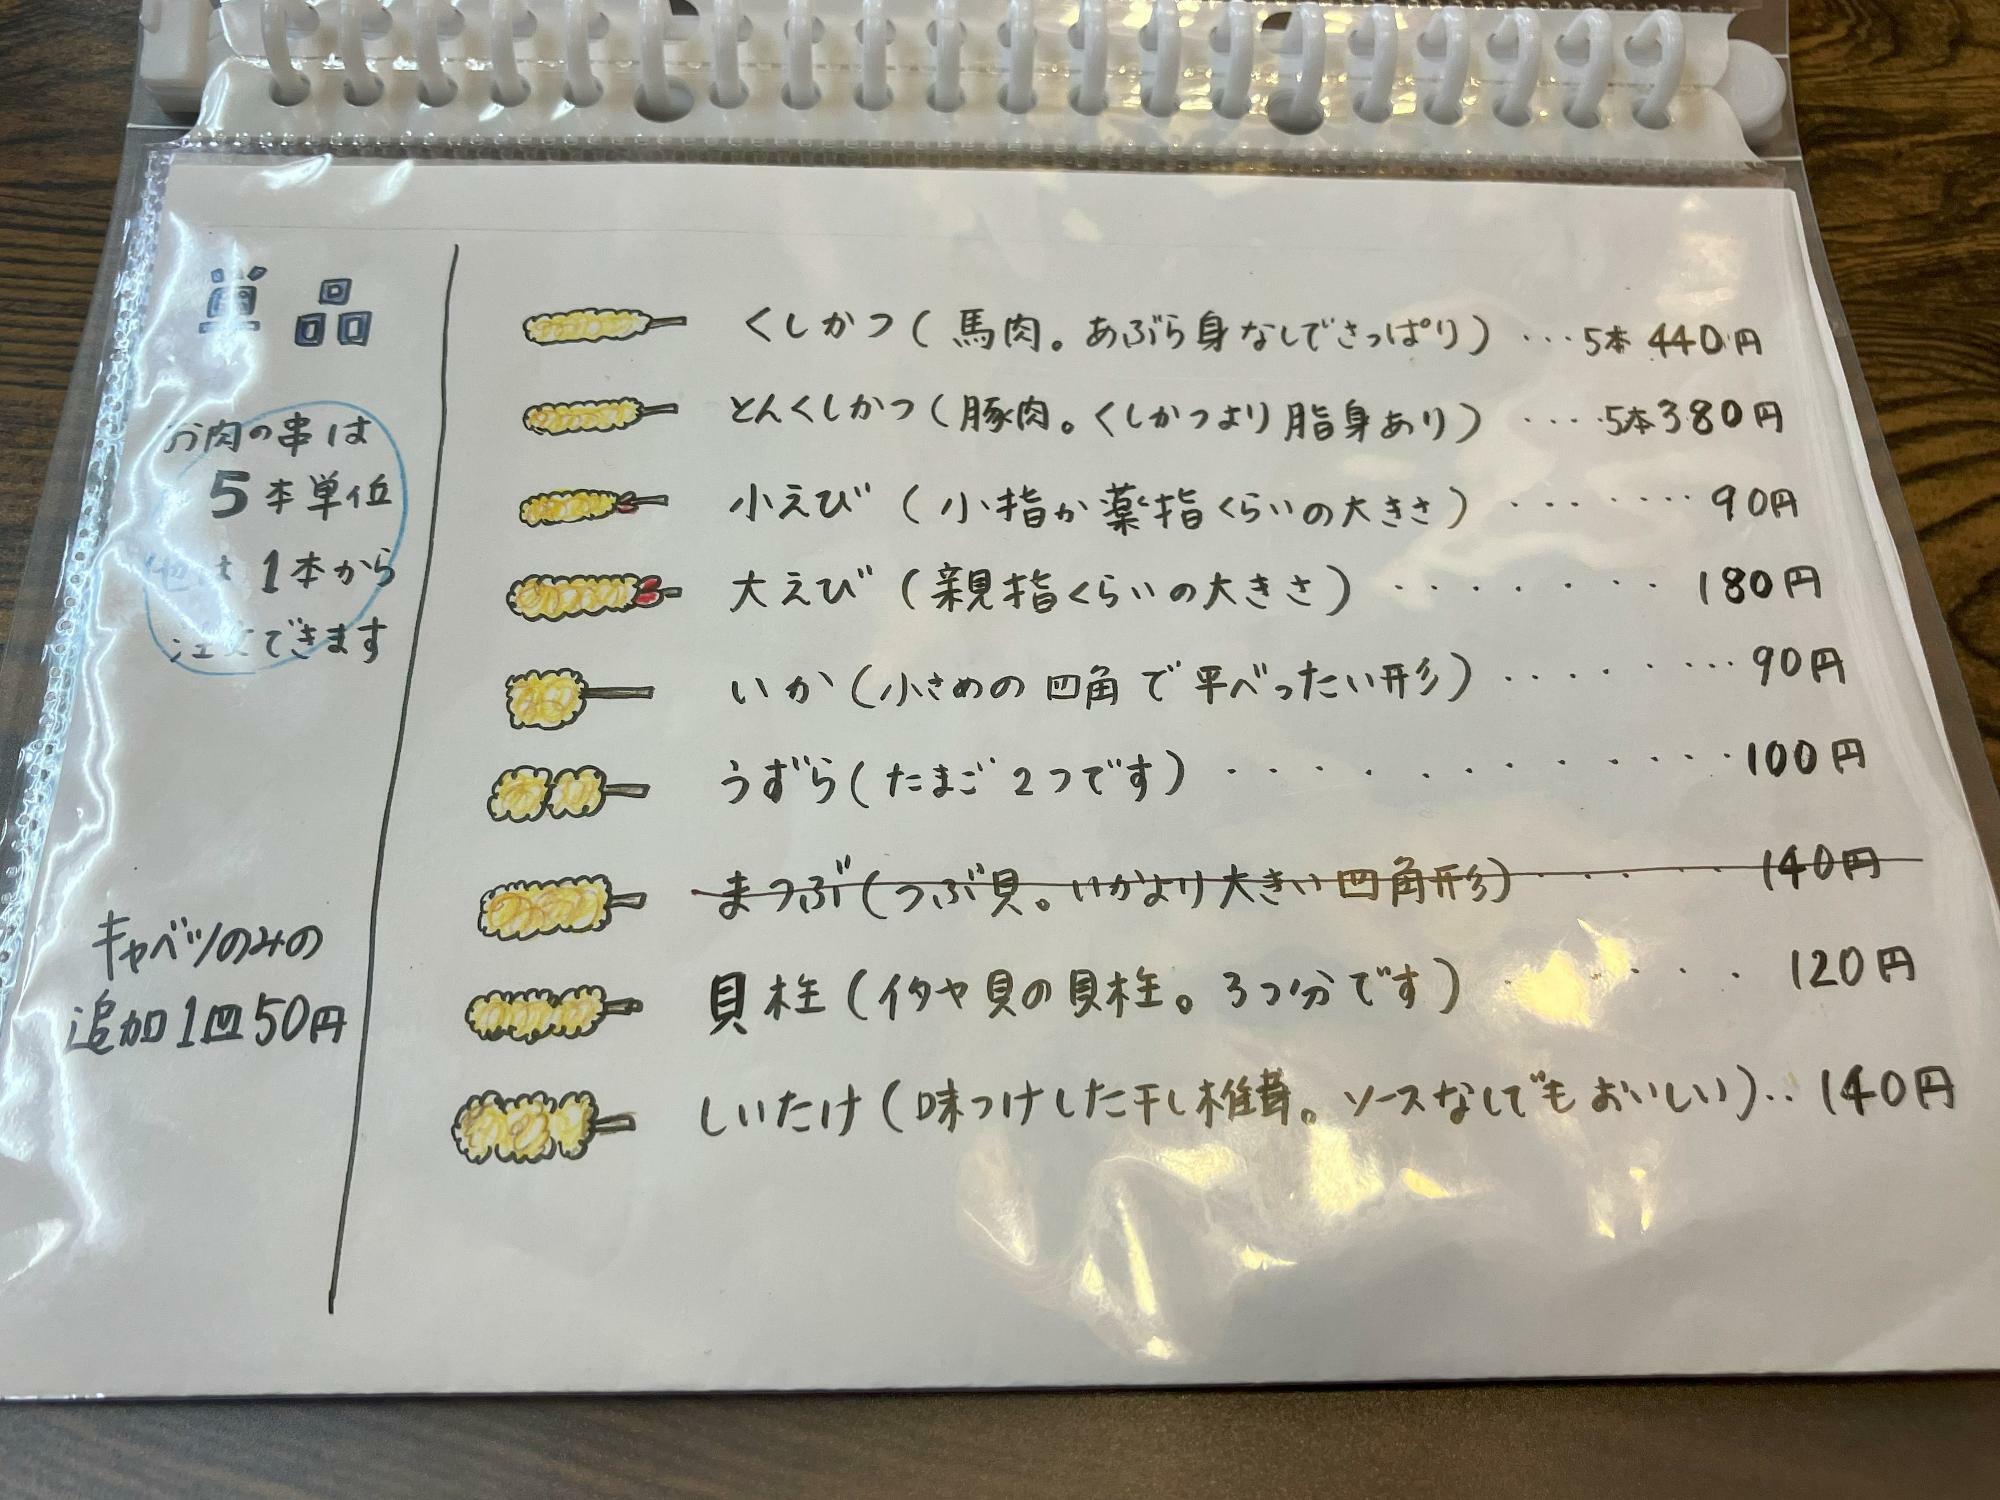 単品
お肉の串は
5本単位
他は1本から
注文できます
キャベツのみの
追加1皿50円
くしかつ(馬肉。あぶら身なしでさっぱり)…5本 440円
とんくしかつ(豚肉。くしかつより脂身あり)….5本380円
小えび (小指か薬指くらいの大きさ)........90円
大えび (親指くらいの大きさ)........180円
いか(小さめの四角で平べったい形)........90円
うずら(たまご2つです)............100円
まつぶ(つぶ貝。いかより大きい四角形).....140円
貝柱(イタヤ貝の貝柱。3つ分です).....120円
しいたけ(味つけした干し椎茸。ソースなしでもおいしい)..140円